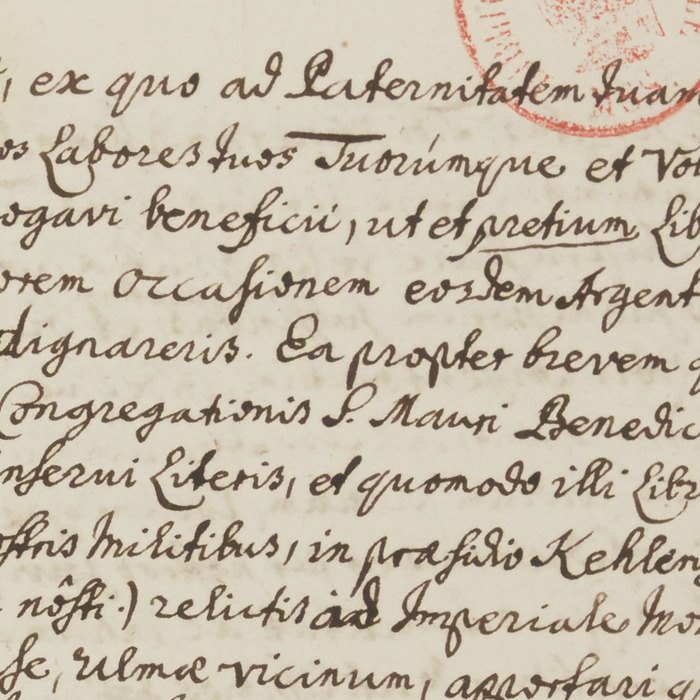 , ex quo ad Paternitatem tuam
os Labores tuos Tuorúmque et Vo
ogavi beneficii, ut et pretium Lib
orem occasionem eosdem Argent
dignareris. Ea propter brevem
Congregationis S. Mauri Benedic
inserui Literis, et quomodo illi Libr
ostris Militibus, in præsidio Kehlen
nôsti.) relictis ad Imperiale Mo
se, Ulmæ vicinum, apportari q